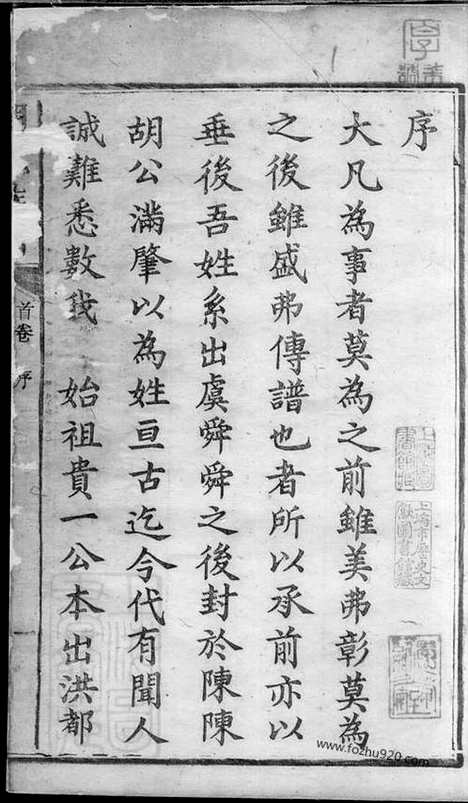 序
大凡為事者莫為之前雖美弗彰莫為
之後雖盛弗傳譜也者所以承前亦以
垂後吾姓系出虞舜舜之後封於陳陳
胡公滿肇以為姓亘古迄今代有聞人
誠難悉數我　始祖貴一公本出洪都
首卷　序
www.fozhu920.com